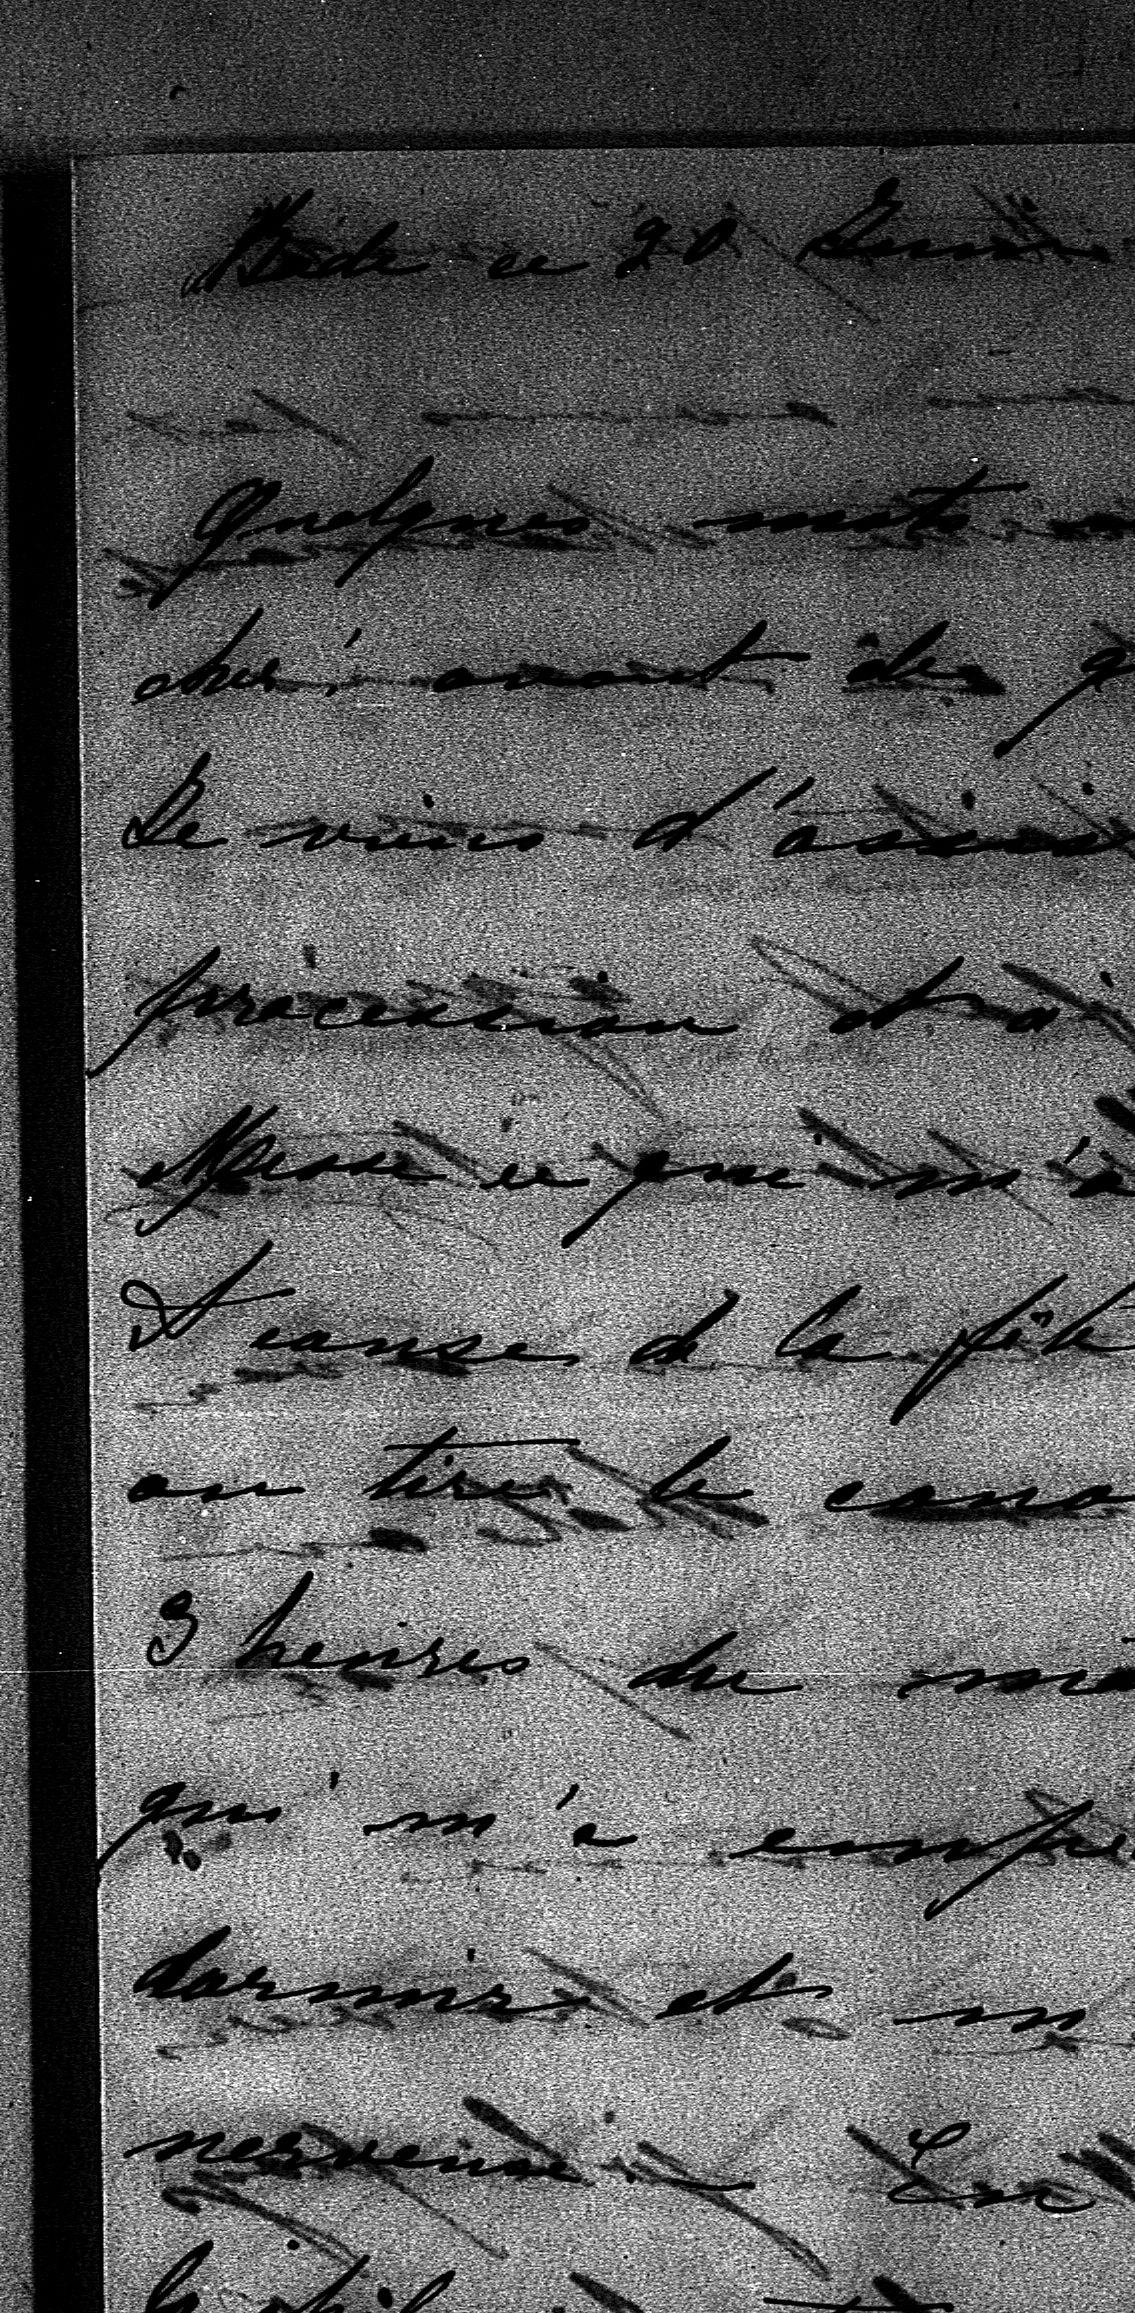 ce 20
Quelques mots
cher, avant de q
Je viens d'assis
procession et à
Messe ce qui m'a
A cause de la fête
on tire le cano
3 heures du ma
qui m'a empê
dormir et m
nerveuse. En